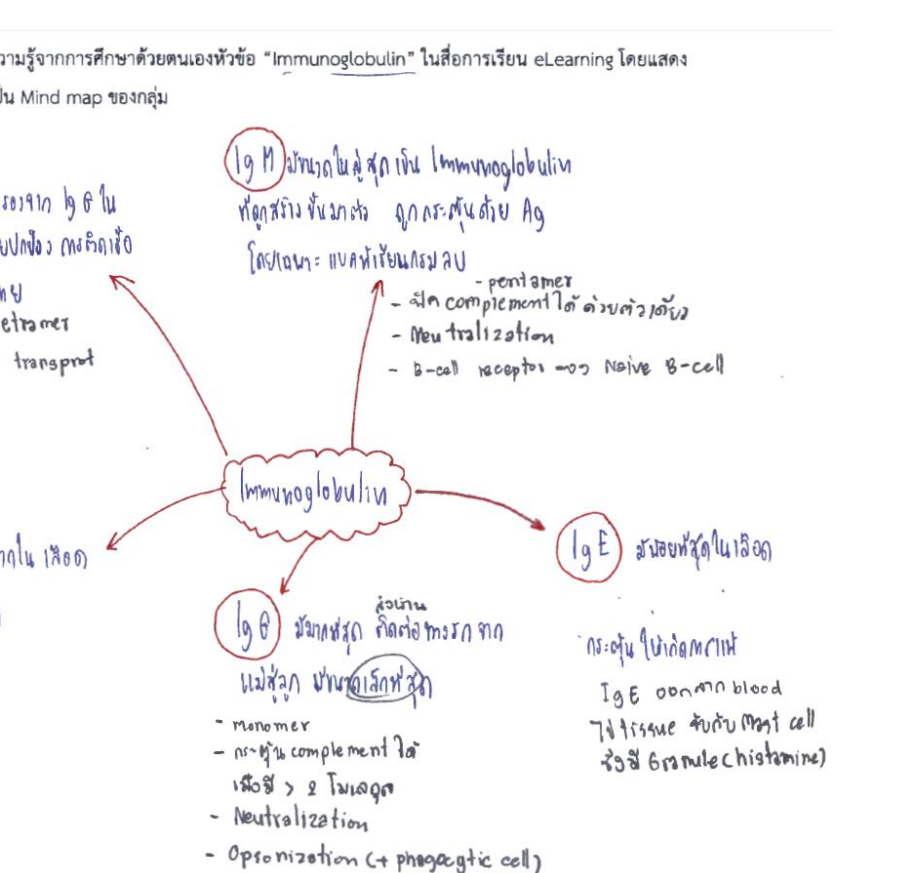 วามรู้จากการศึกษาด้วยตนเองหัวข้อ “Immunoglobulin” ในสื่อการเรียน eLearning โดยแสดง
ป็น Mind map ของกลุ่ม
IgM มีขนาดใหญ่สุด เป็น Immunoglobulin
ที่ถูกสร้างขึ้นมา ถูกกระตุ้นด้วย Ag
โดยเฉพาะ แบคทีเรียแกรมลบ
- pentamer
- ฟิค complement ได้ ด้วยตัวเดียว
- Neutralization
- B-cell receptor ของ Naive B-cell
รองจาก IgG ใน
การติดเชื้อ
etramer
transprot
Immunoglobulin
ใน เลือด
IgE มีน้อยที่สุดในเลือด
กระตุ้น ให้เกิดการแพ้
IgE ออกจาก blood
ไป tissue จับกับ Mast cell
ซึ่งมี Granule (histamine)
IgG มีมากที่สุด ติดต่อทางรก จาก
ส่งผ่าน
แม่สู่ลูก มีขนาดเล็กที่สุด
- monomer
- กระตุ้น complement ได้
เมื่อมี > 2 โมเลกุล
- Neutralization
- Opsonization (+ phagocytic cell)